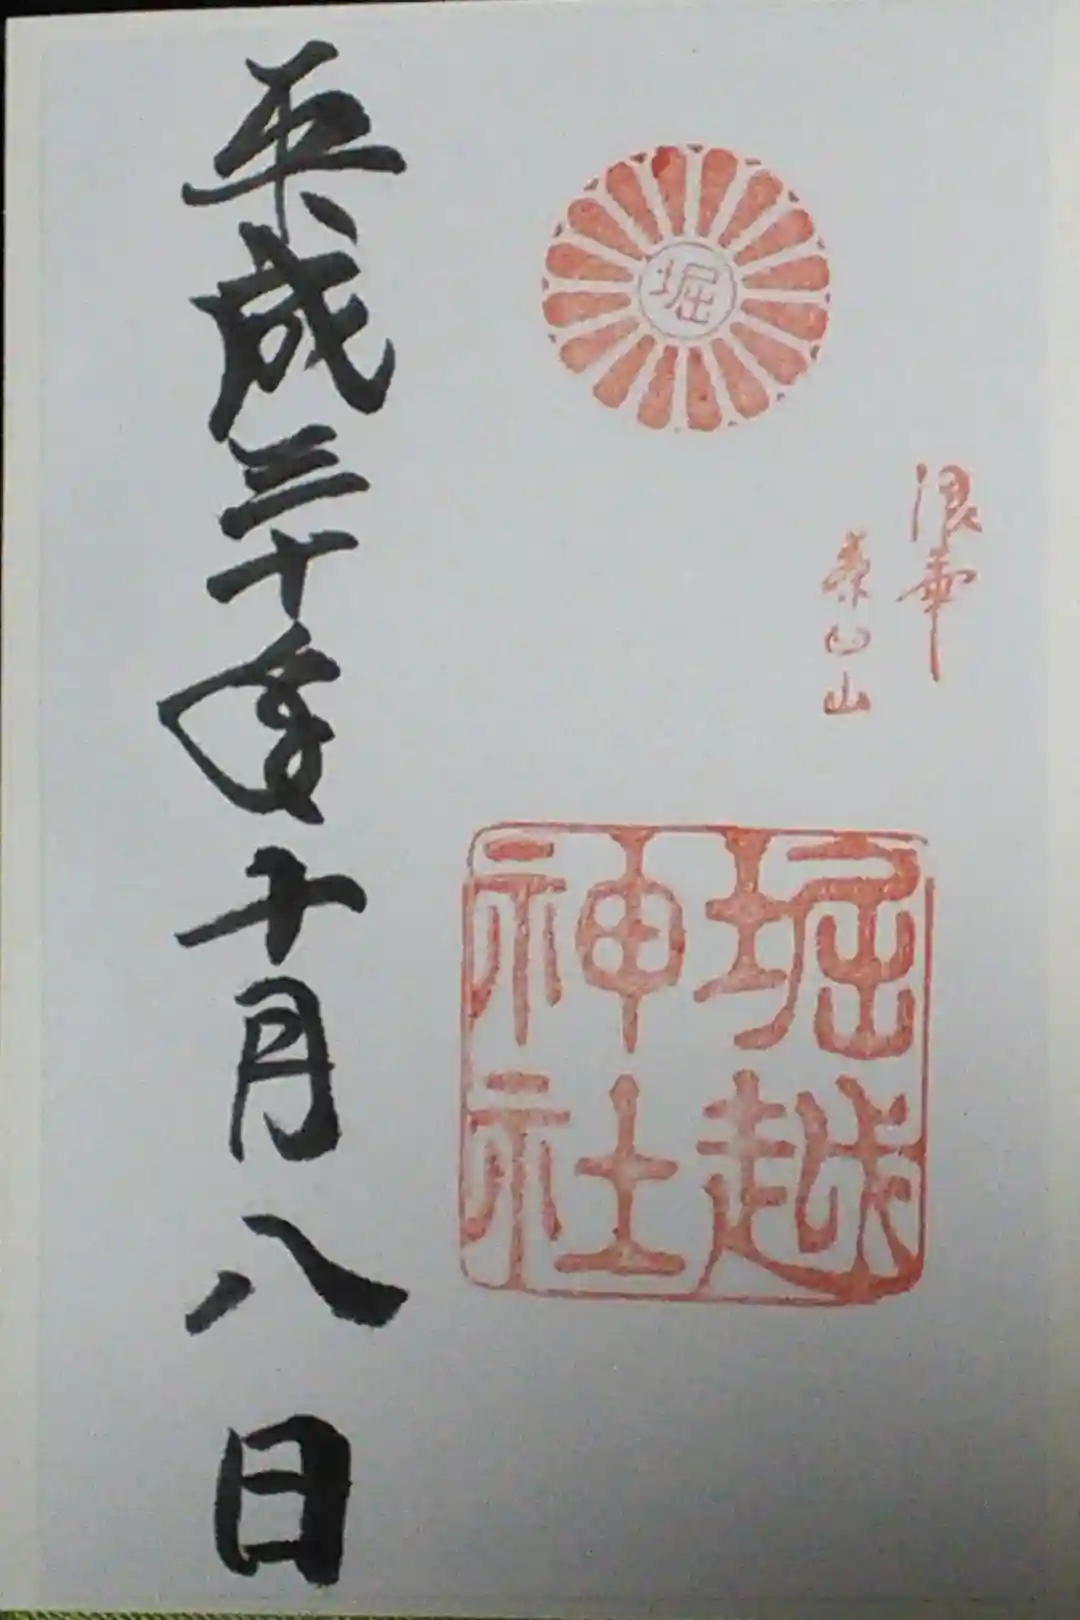 浪華
茶臼山
堀
堀越
神社
平成三十年十月八日